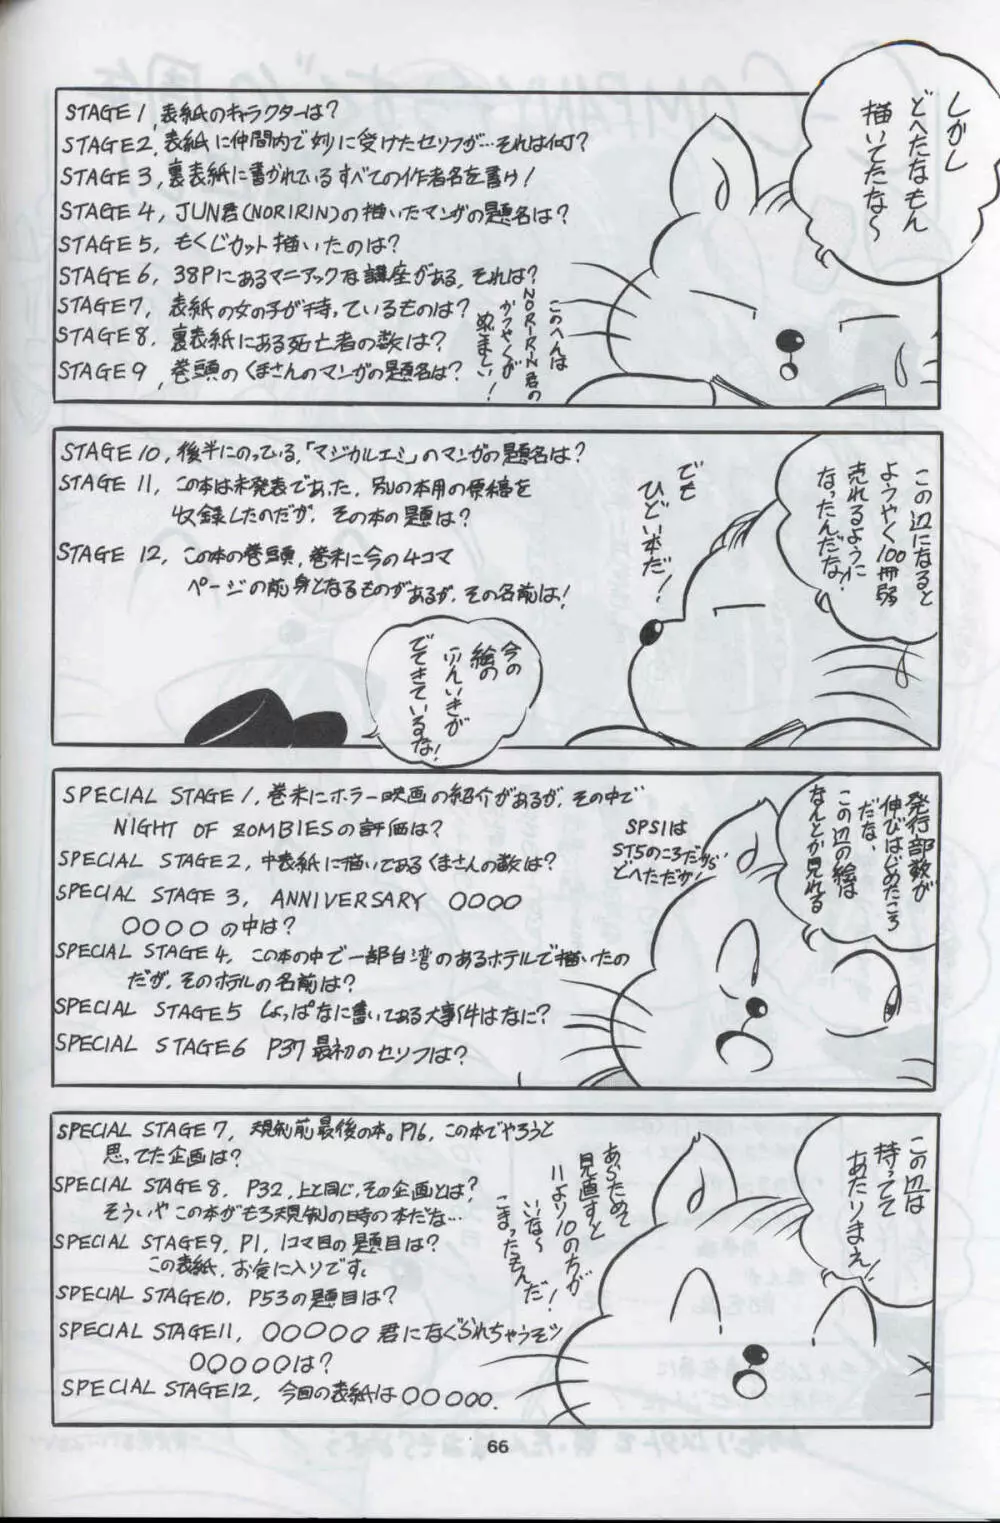 しかし
どへたなもん
描いてたな〜
STAGE 1, 表紙のキャラクターは?
STAGE 2, 表紙に仲間内で妙に受けたセリフが…それは何?
STAGE 3, 裏表紙に書かれているすべての作者名を書け!
STAGE 4, JUN君(NORIRIN)の描いたマンガの題名は?
STAGE 5, もくじカット描いたのは?
STAGE 6, 38Pにあるマニアックな講座がある, それは?
STAGE 7, 表紙の女の子が持っているものは?
STAGE 8, 裏表紙にある死亡者の数は?
STAGE 9, 巻頭のくまさんのマンガの題名は?
このへんは
NORIRIN君の
かつやくが
めざましい!
この辺になると
ようやく100冊弱
売れるように
なったんだな!
でも
ひどい本だ!
STAGE 10, 後半にのっている,「マジカルエミ」のマンガの題名は?
STAGE 11, この本は未発表であった, 別の本用の原稿を
収録したのだが, その本の題は?
STAGE 12, この本の巻頭, 巻末に今の4コマ
ページの前身となるものがあるが, その名前は!
今の
絵の
ふんいきが
でてきているな!
発行部数が
伸びはじめたころ
だな、
この辺の絵は
なんとか見れる
SPECIAL STAGE 1, 巻末にホラー映画の紹介があるが, その中で
NIGHT OF ZOMBIESの評価は?
SPS1は
ST5のころだから
どへただが!
SPECIAL STAGE 2, 中表紙に描いてあるくまさんの数は?
SPECIAL STAGE 3, ANNIVERSARY ○○○○
○○○○の中は?
SPECIAL STAGE 4, この本の中で一部台湾のあるホテルで描いたの
だが, そのホテルの名前は?
SPECIAL STAGE 5 しょっぱなに書いてある大事件はなに?
SPECIAL STAGE 6 P37最初のセリフは?
この辺は
持ってて
あたりまえ!
あらためて
見直すと
11より10のちが
いな〜
こまったもんだ!
SPECIAL STAGE 7, 規制前最後の本。P16, この本でやろうと
思ってた企画は?
SPECIAL STAGE 8, P32, 上と同じ, その企画とは?
そういや この本がもろ規制の時の本だな…
SPECIAL STAGE 9, P1, 1コマ目の題目は?
この表紙, お気に入りです。
SPECIAL STAGE 10, P53の題目は?
SPECIAL STAGE 11, ○○○○○君になぐられちゃうぞッ
○○○○○は?
SPECIAL STAGE 12, 今回の表紙は○○○○○.
66